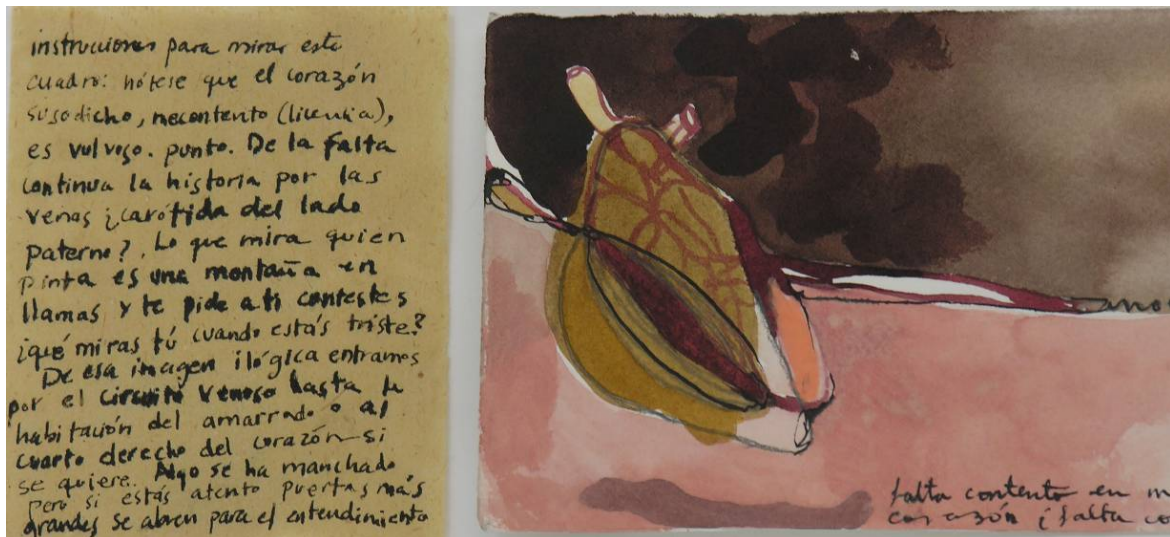 instrucciones para mirar este
cuadro: nótese que el corazón
susodicho, necontento (licencia),
es vulvoso. punto. De la falta
continua la historia por las
venas ¿carótida del lado
paterno? Lo que mira quien
pinta es una montaña en
llamas y te pide a ti contestes
¿qué miras tú cuando estás triste?
De esa imagen ilógica entramos
por el circuito venoso hasta la
habitación del amarrado o al
cuarto derecho del corazón si
se quiere. Algo se ha manchado
pero si estás atento puertas más
grandes se abren para el entendimiento
falta contento en
corazón ¡falta